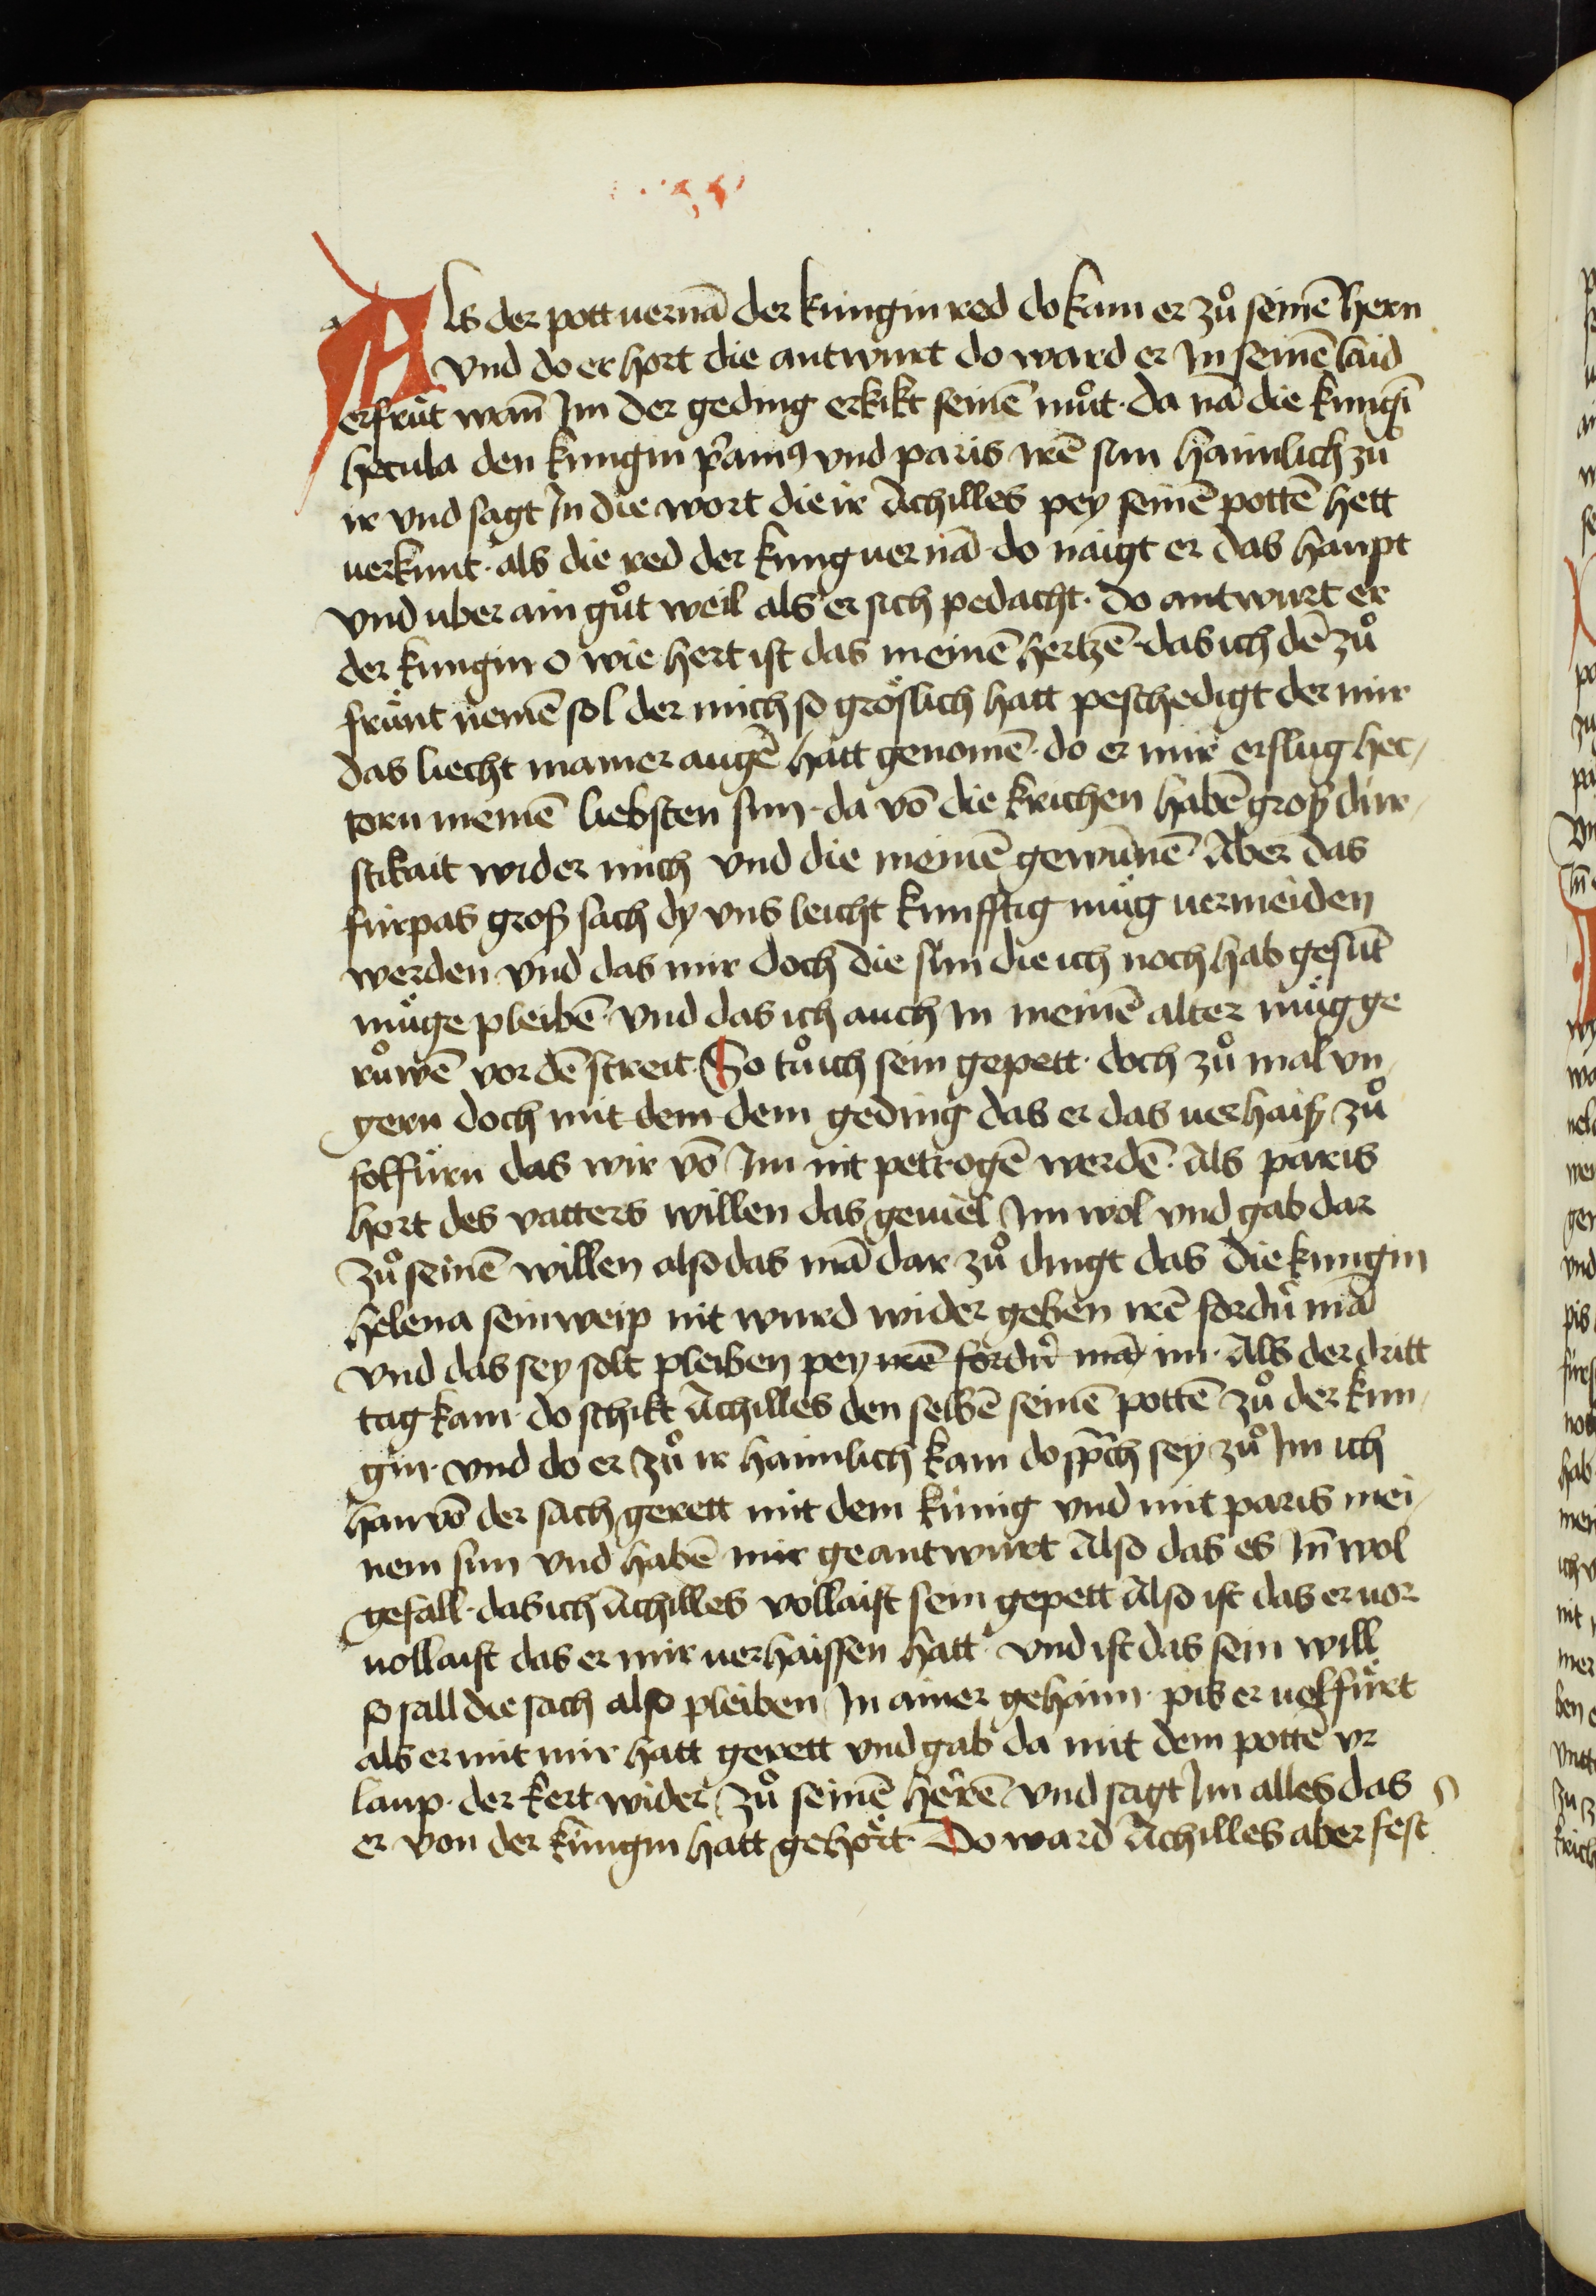 Als der pott uernā der kungin red do kam er zuͦ seinē hern
vnd do er hort die antwurt do ward er In seinē laid
erfrüt wañ Im der geding erkikt seinē muͦt · da nā die kungī
hecula den kungin pͥamꝰ vnd paris irē sun haimlich zuͦ
ir vnd sagt In die wort die ir Achilles pey seinē pottē hett
uerkunt · als die red der kung uernā · do naigt er das haupt
vnd uber ain guͦt weil als er sich pedacht · do antwurt er
der kungin o wie hert ist das meinē hertzē · das ich dē zuͦ
fründt nemē sol der mich so gröslich hatt peschedigt der mir
das liecht mainer augē hatt genomē · do er mir erslug hec-
torn meinē liebsten sun · da vō die krichen habē groß dur-
stikait wider mich vnd die meinē gewūnē · Aber das
furpas groß sach dy vns leicht kunfftig müg uermeiden
werden vnd das mir doch die sün die ich noch hab gesūt
müge pleibē · vnd das ich auch In meinē alter müg ge
ruͦwē vor dē streit · So tuͦ ich sein gepett · doch zuͦ mal vn-
gern doch mit dem dem geding das er das uerhaiß zuͦ
folfürn das wir vō Im nit petrogē werdē · Als paris
hort des vatters willen das geuiel Im wol vnd gab dar
zuͦ seinē willen also das mā dar zuͦ dingt das die kungin
helena sein weip nit wurd wider geben irē fordrͥ mā
vnd das sey solt pleiben pey irē fordrͥ mā im · Als der dritt
tag kam · do schikt Achilles den selbē seinē pottē zuͦ der kun-
gin · vnd do er zuͦ ir haimlich kam do sp̄ch sey zuͦ Im ich
han vō der sach gerett mit dem künig vnd mit paris mei-
nem sun vnd habē mir geantwurt Also das es Iñ wol
gefall · das ich Achilles vollaist sein gepett Also ist das er uor
uollaist das er mir uerhaissen hatt · vnd ist das sein will
so sall die sach also pleiben In ainer gehaim · pis er uolfürt
als er mit mir hatt gerett vnd gab da mit dem pottē vr
laup · der kert wider zuͦ seinē herrē vnd sagt Im alles das
er von der küngin hatt gehört · Do ward Achilles aber fest